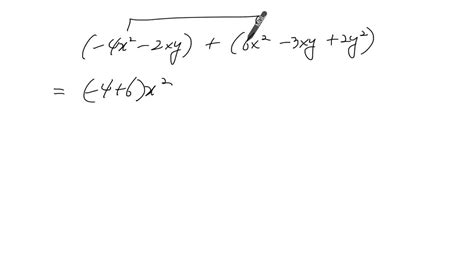 (-4x² - 2xy) + (6x² - 3xy + 2y²)
= (-4+6)x²